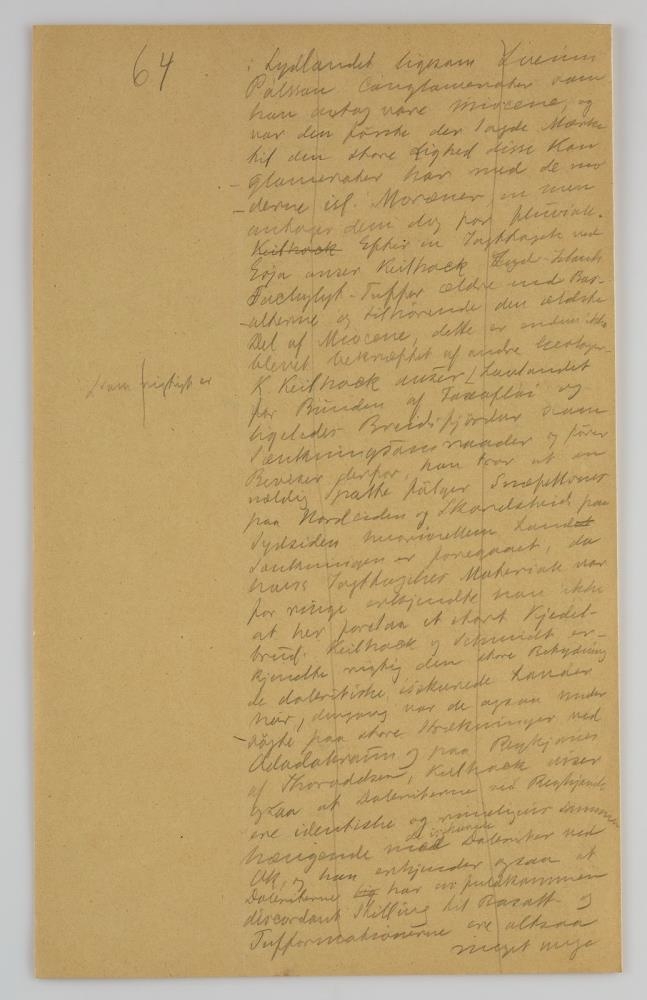 64
i Sydlandet ligesom Sveinn
Pálsson Conglomerater som
han antog være miocene, og
var den første der lagde Mærke
til den store Lighed disse Kon
glomerater har med de mo
derne isl. Moræner, men
antager dem dog for fluviale.
Keilhack Efter en Iagttagelse ved
Esja anser Keilhack Syd-Islands
Tachylyt-Tuffer ældre end Bas-
alterne og tilhørende den ældste
Del af Miocene, dette er endnu ikke
blevet bekræftet af andre Geologer.
K. Keilhack anser Lavlandet
som rigtigt er
for Bunden af Faxaflói og
ligeledes Breidifjördur som
Sænkningsomraader og fører
Beviser derfor, han tror at en
vældig Spalte følger Snæfellsnes
paa Nordsiden og Skardsheidi paa
Sydsiden hvorimellem Landet
Sænkningen er foregaaet, da
hans Iagttagelses Materiale var
for ringe erkjendte han ikke
at her forelaa et stort Kjedel-
brud. Keilhack og Schmidt er-
kjendte rigtig den store Betydning
de doleritiske isskurede Lavaer
har, dengang var de ogsaa under
søgte paa store Strækninger ved
Odadahraun og paa Reykjanes
af Thoroddsen, Keilhack viser
ogsaa at Doleriterne ved Reykjavik
ere identiske og rimeligvis sammen
hængende med Doleriter ved
Ok, og han erkjender ogsaa at
Doleriterne har en fuldkommen
discordant Stilling til Basalt- og
Tufformationerne ere altsaa
meget unge